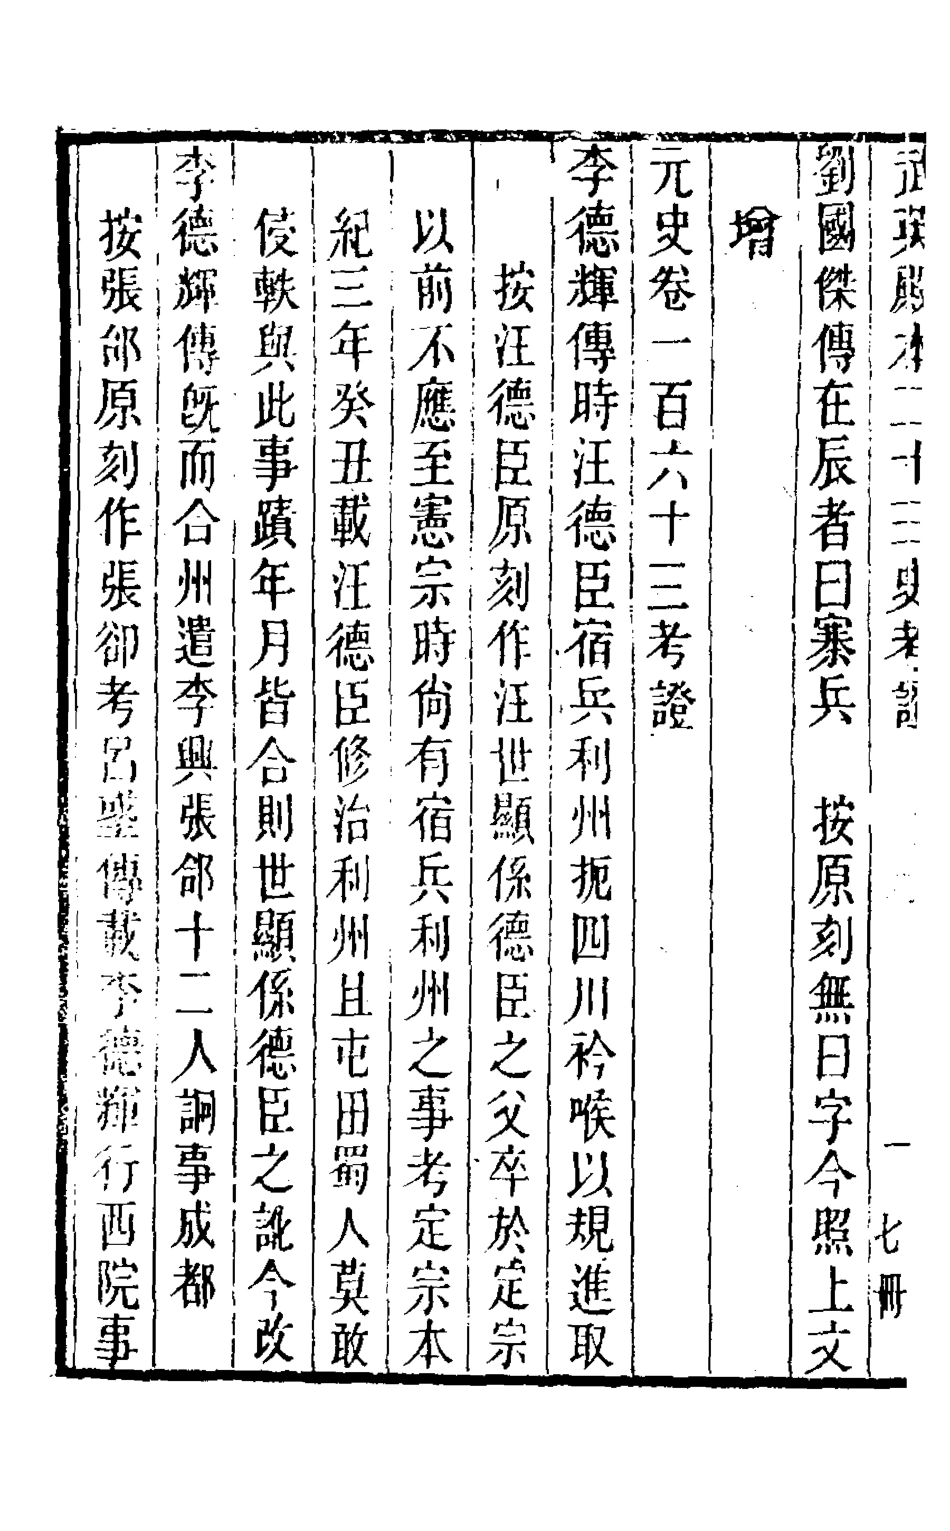 武英殿本二十三史考證
一
七冊
劉國傑傳在辰者曰寨兵　按原刻無曰字今照上文
增
元史卷一百六十三考證
李德輝傳時汪德臣宿兵利州扼四川衿喉以規進取
按汪德臣原刻作汪世顯係德臣之父卒於定宗
以前不應至憲宗時尙有宿兵利州之事考定宗本
紀三年癸丑載汪德臣修治利州且屯田蜀人莫敢
侵軼與此事蹟年月皆合則世顯係德臣之訛今改
李德輝傳旣而合州遣李興張郃十二人詗事成都
按張郃原刻作張卻考呂𡐛傳載李德輝行西院事